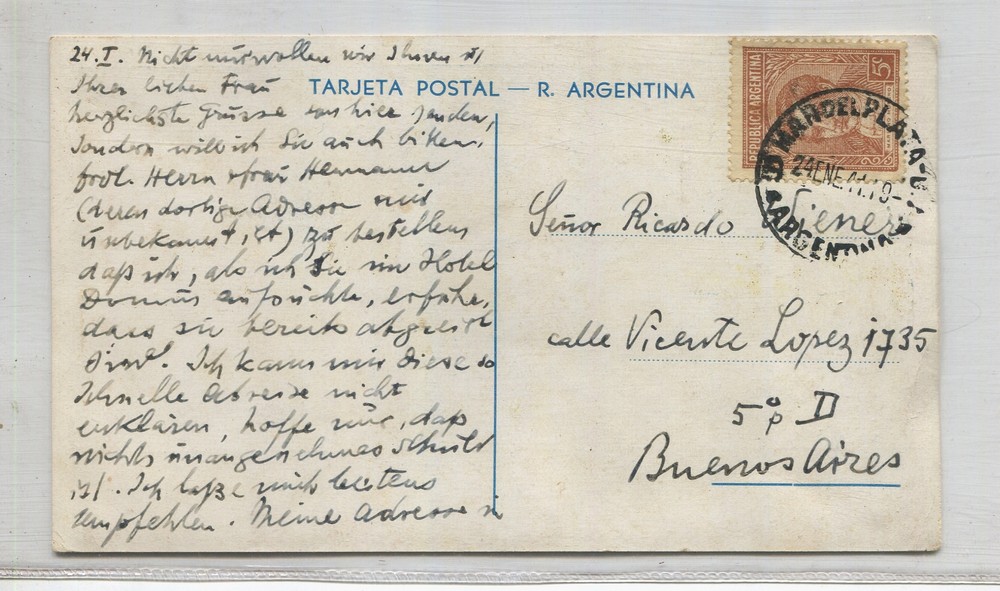 24. I. Nicht nur wollen wir Ihnen u
Ihrer lieben Frau
herzlichste Grüsse von hier senden,
sondern will ich Sie auch bitten,
Herrn Frau Hermann
(deren dortige Adresse mir
unbekannt ist) zu bestellen
daß ich, als ich Sie im Hotel
Domus aufsuchte, erfuhr,
dass sie bereits abgereist
sind. Ich kann mir diese so
schnelle Abreise nicht
erklären, hoffe nur, daß
nichts unangenehmes Schuld
ist. Ich lasse mich bestens
empfehlen. Meine Adresse
TARJETA POSTAL — R. ARGENTINA
REPUBLICA ARGENTINA
5c
MAR DEL PLATA
24 ENE 41.19
ARGENTINA
Señor Ricardo
calle Vicente Lopez 1735
5º p D
Buenos Aires